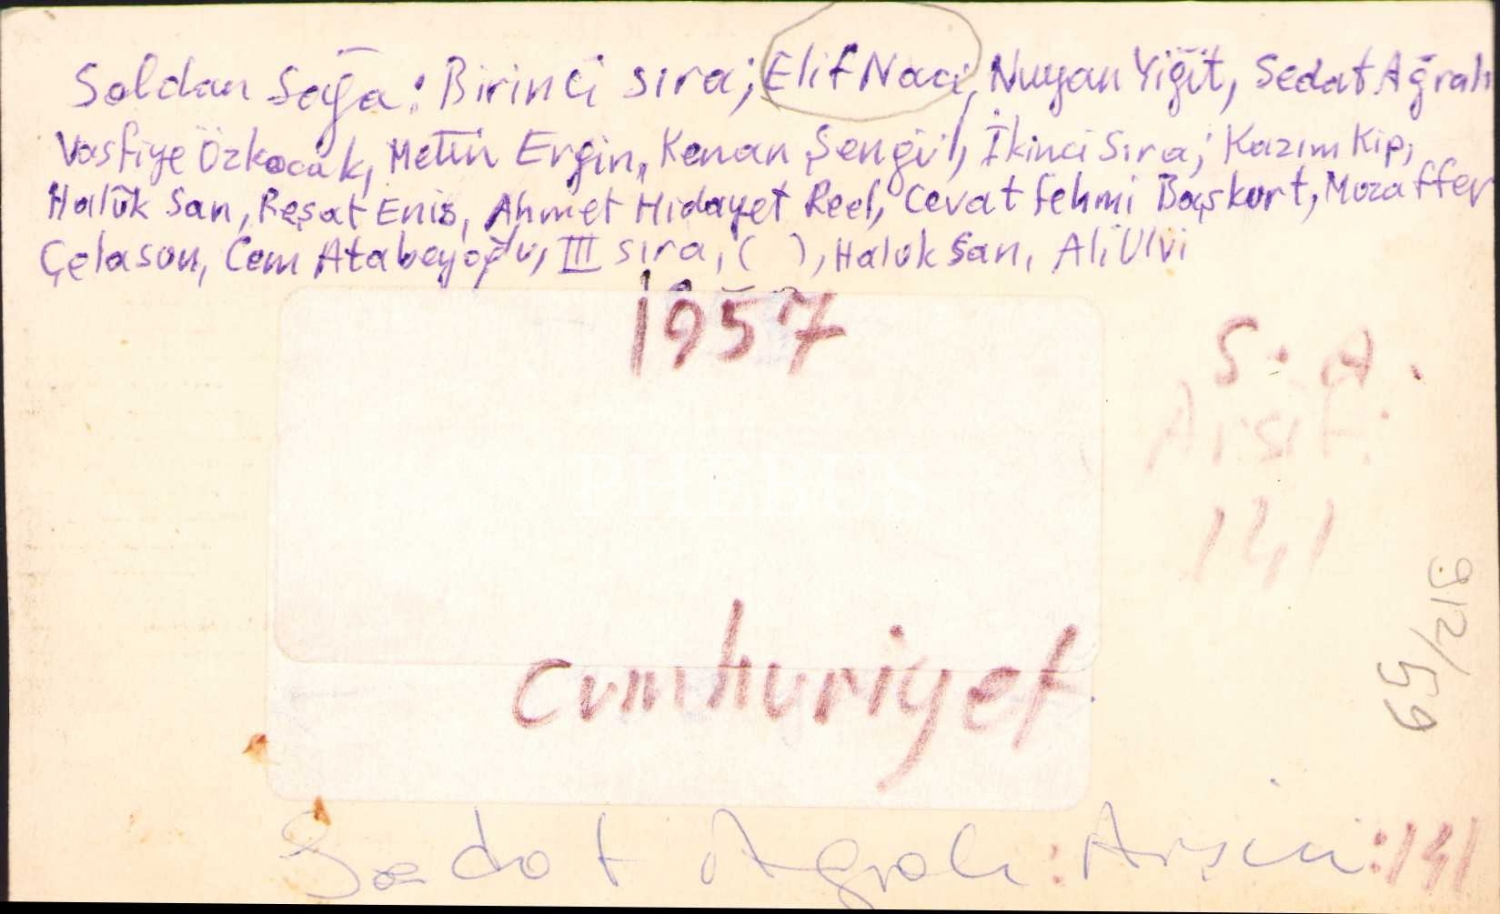 Soldan Sağa: Birinci sıra; Elif Naci, Nuyan Yiğit, Sedat Ağralı
Vasfiye Özkoçak, Metin Ergin, Kenan Şengül, İkinci Sıra; Kazım Kip,
Halûk San, Reşat Enis, Ahmet Hidayet Reel, Cevat Fehmi Başkurt, Mozaffer
Çelasun, Cem Atabeyoğlu, III sıra, ( ), Haluk San, Ali Ulvi
1957
S. A.
Arşif.
141
PHEBUS
912/59
Cumhuriyet
Sedat Ağralı: Arşivi: 141